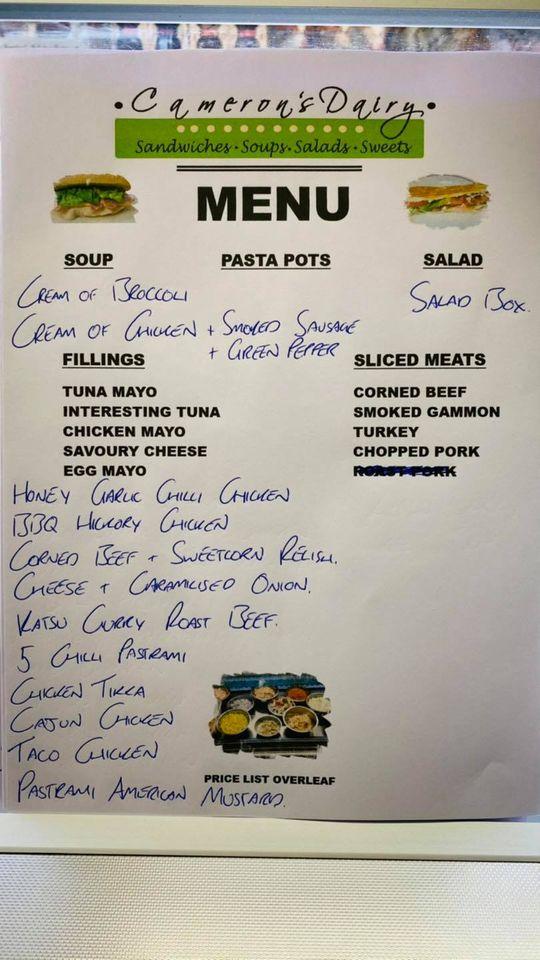 • Cameron's Dairy •
Sandwiches • Soups • Salads • Sweets
MENU
SOUP PASTA POTS SALAD
CREAM OF BROCCOLI SALAD BOX.
CREAM OF CHICKEN + SMOKED SAUSAGE
+ GREEN PEPPER
FILLINGS SLICED MEATS
TUNA MAYO CORNED BEEF
INTERESTING TUNA SMOKED GAMMON
CHICKEN MAYO TURKEY
SAVOURY CHEESE CHOPPED PORK
EGG MAYO ROAST PORK
HONEY GARLIC CHILLI CHICKEN
BBQ HICKORY CHICKEN
CORNED BEEF + SWEETCORN RELISH.
CHEESE + CARAMILISED ONION.
KATSU CURRY ROAST BEEF.
5 CHILLI PASTRAMI
CHICKEN TIKKA
CAJUN CHICKEN
TACO CHICKEN
PRICE LIST OVERLEAF
PASTRAMI AMERICAN MUSTARD.